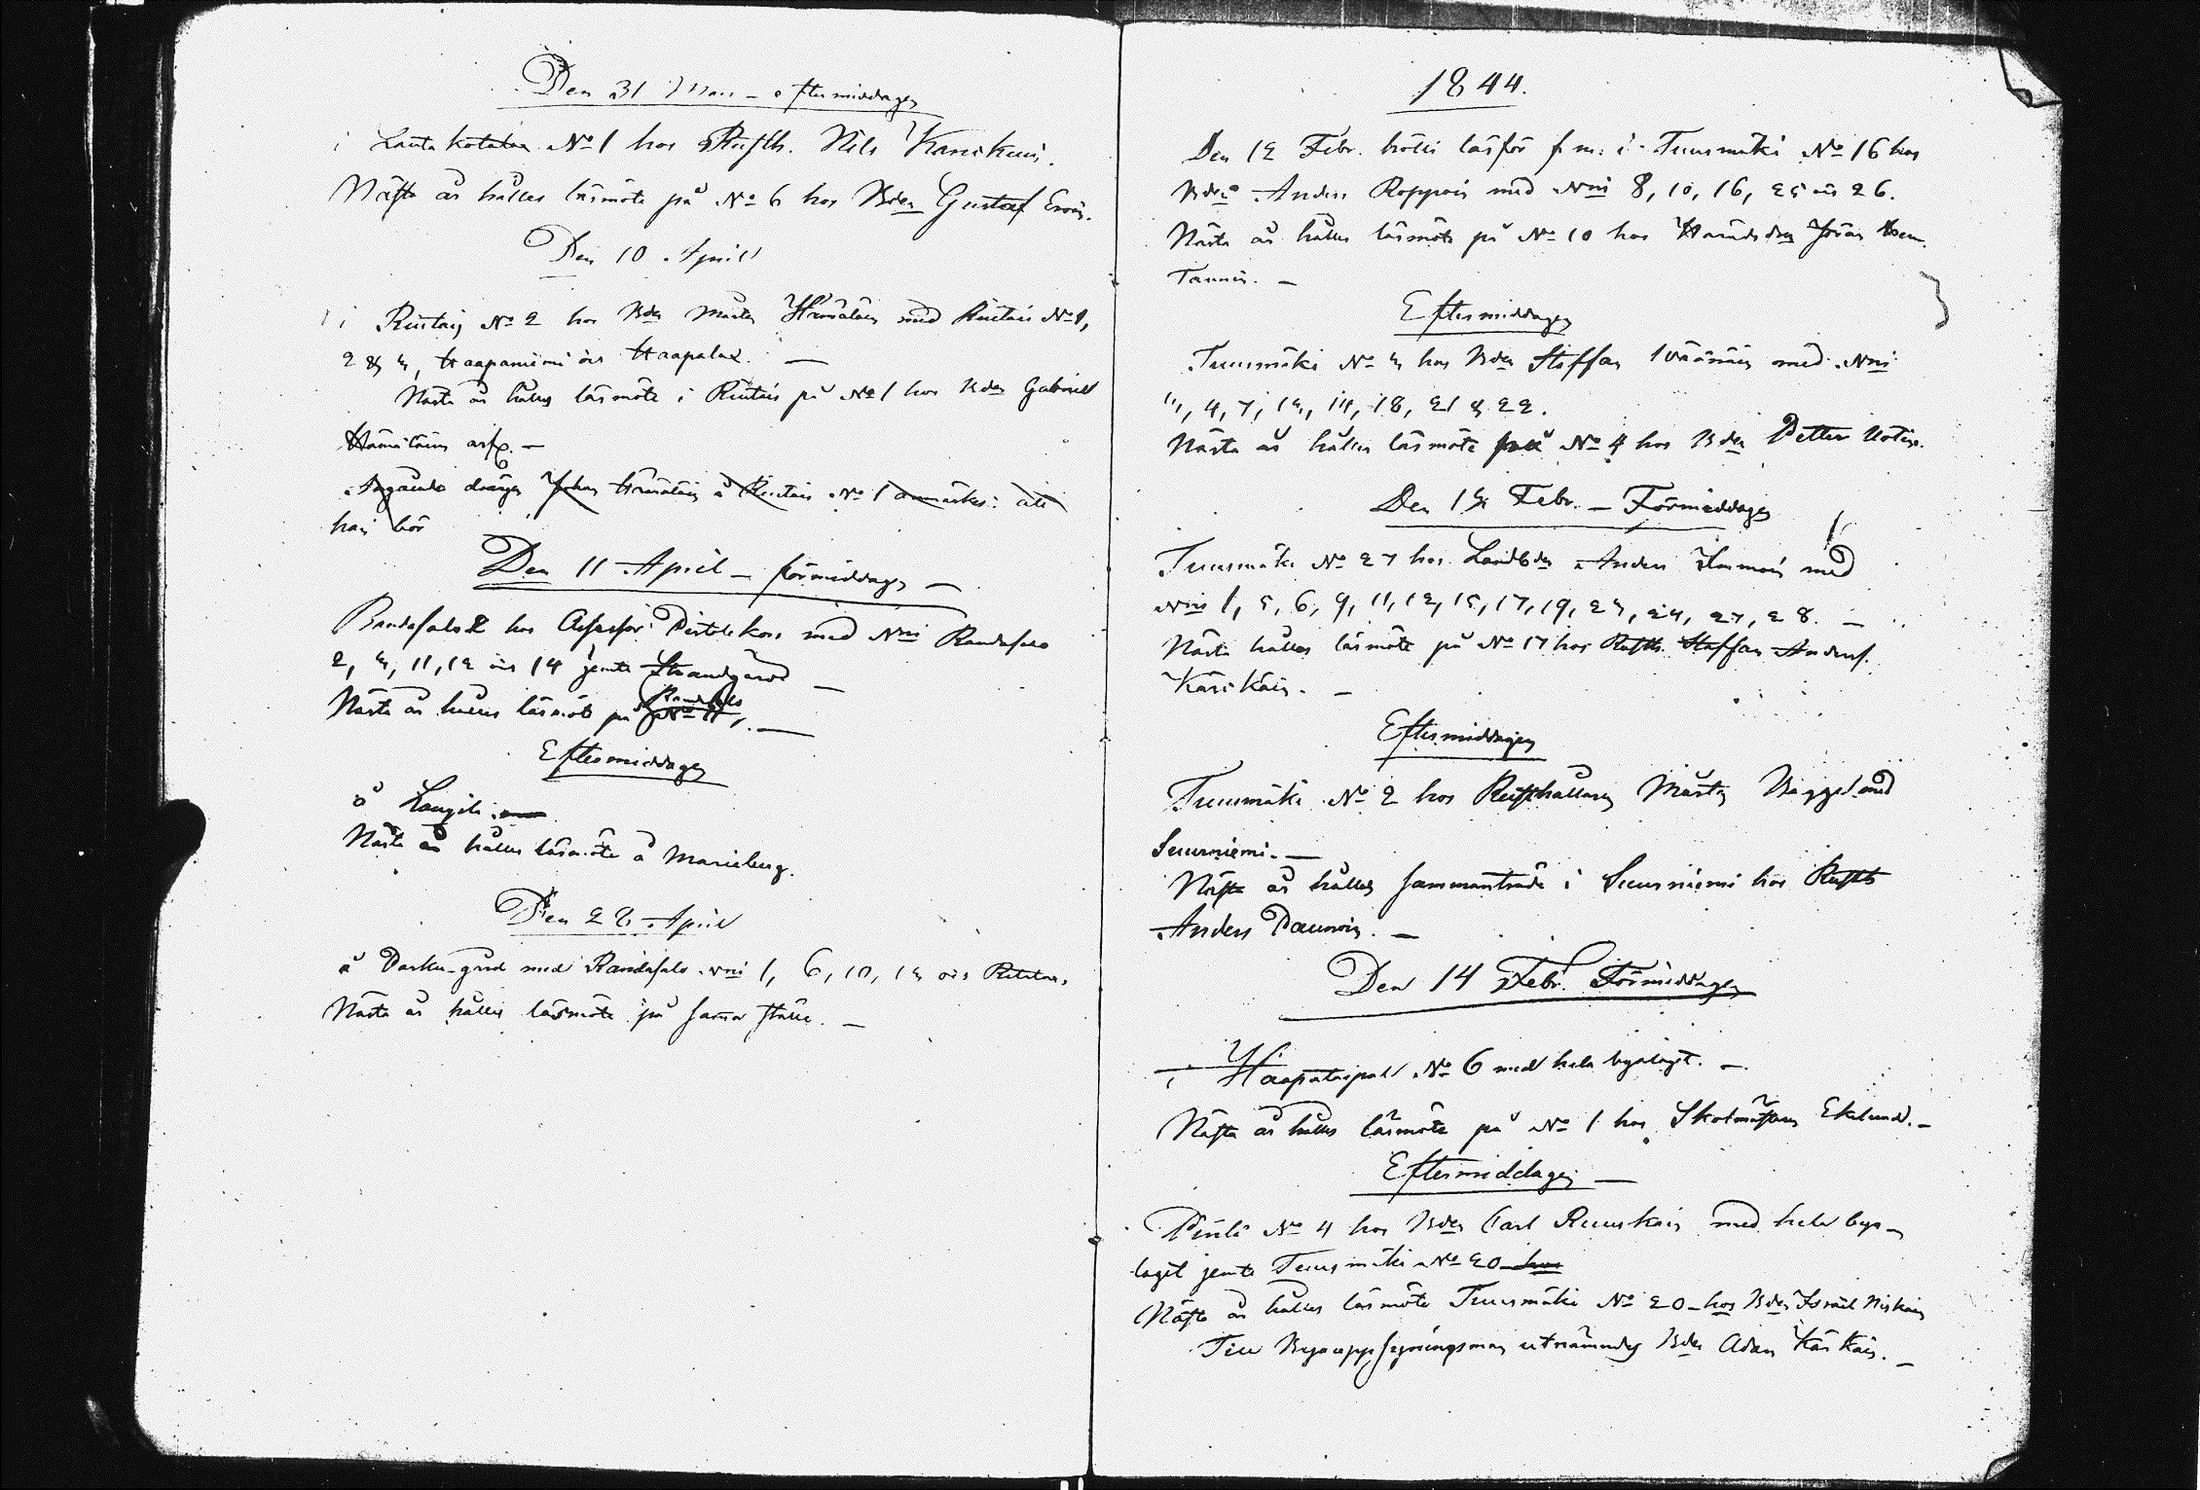 Den 31 Mars - eftermiddagen
i Lautakotalax No 1 hos Rusth. Nils Karikuin.
Näste år hålles läsmöte på No 6 hos Bden Gustaf
Den 10 April
i Rintais No 2 hos Bden Mårten Hämäläin med Rintais No 1,
2 & 3, Haapaniemi och Haapalax. —
Nästa år hålles läsmöte i Rintais på No 1 hos Bden Gabriel
Hämäläins arf. —
drängen Johan Hämäläin å Rintais No 1 att
han bör
Den 11 April — förmiddagen —
Randasalo 2 hos Assessor Pistolekors med Nris Randasalo
2, 3, 11, 12 och 14 jemte Strandgård —
Nästa år hålles läsmöte på Randasalo No 11, —
Eftermiddagen
å Langila
Nästa år hålles läsmöte å Marieberg.
Den 28 April
å med Randasalo Nris 1, 6, 10, 13 och
Nästa år hålles läsmöte på samma ställe. —
1844.
Den 12 Febr. hölls läsför f.m. i Tuusmäki No 16 hos
Bden Anders Roppoin med Nris 8, 10, 16, 25 och 26.
Nästa år hålles läsmöte på No 10 hos Jöran
—
Eftermiddagen
Tuusmäki No 3 hos Bden Staffan Wäänäin med Nris
3, 4, 7, 13, 14, 18, 21 & 22.
Nästa år hålles läsmöte på No 4 hos Bden Petter
Den 13 Febr. — Förmiddagen
Tuusmäki No 27 hos Landbden Anders med
Nris 1, 5, 6, 9, 11, 12, 15, 17, 19, 23, 24, 27, 28. —
Nästa hålles läsmöte på No 17 hos Rusth. Staffan Anders.
Kärikäin. —
Eftermiddagen
Tuusmäki No 2 hos Rusthållaren Mårten Bagge med
Suurniemi. —
Nästa år hålles sammanträde i Suurniemi hos Rusth
Anders Paunoin. —
Den 14 Febr. Förmiddagen
i Haapataipal No 6 med hela byalaget. —
Nästa år hålles läsmöte på No 1 hos Skolmästaren Eklund. —
Eftermiddagen —
No 4 hos Bden Carl Ruuskain med hela bya-
laget jemte Tuusmäki No 20 hos
Nästa år hålles läsmöte Tuusmäki No 20 hos Bden Israel Niskain
Till Byauppsyningsman utnämndes Bden Adam Kärkäin. —